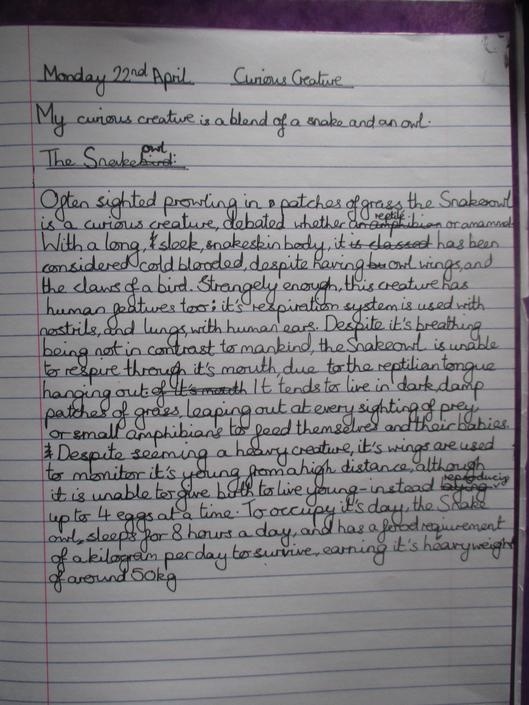 Monday 22nd April Curious Creature
My curious creature is a blend of a snake and an owl.
The Snake bird: owl
Often sighted prowling in patches of grass the Snakeowl
is a curious creature, debated whether an amphibian reptile or a mammal
With a long, sleek, snakeskin body, it is classed has been
considered cold blooded, despite having owl wings, and
the claws of a bird. Strangely enough, this creature has
human features too: it's respiration system is used with
nostrils, and lungs, with human ears. Despite it's breathing
being not in contrast to mankind, the Snakeowl is unable
to respire through it's mouth, due to the reptilian tongue
hanging out of it's mouth It tends to live in dark, damp
patches of grass, leaping out at every sighting of prey
or small amphibians to feed themselves and their babies.
Despite seeming a heavy creature, it's wings are used
to monitor it's young from a high distance, although
it is unable to give birth to live young - instead laying reproducing
up to 4 eggs at a time. To occupy it's day, the Snake
owl, sleeps for 8 hours a day, and has a food requirement
of a kilogram per day to survive, earning it's heavy weight
of around 50kg